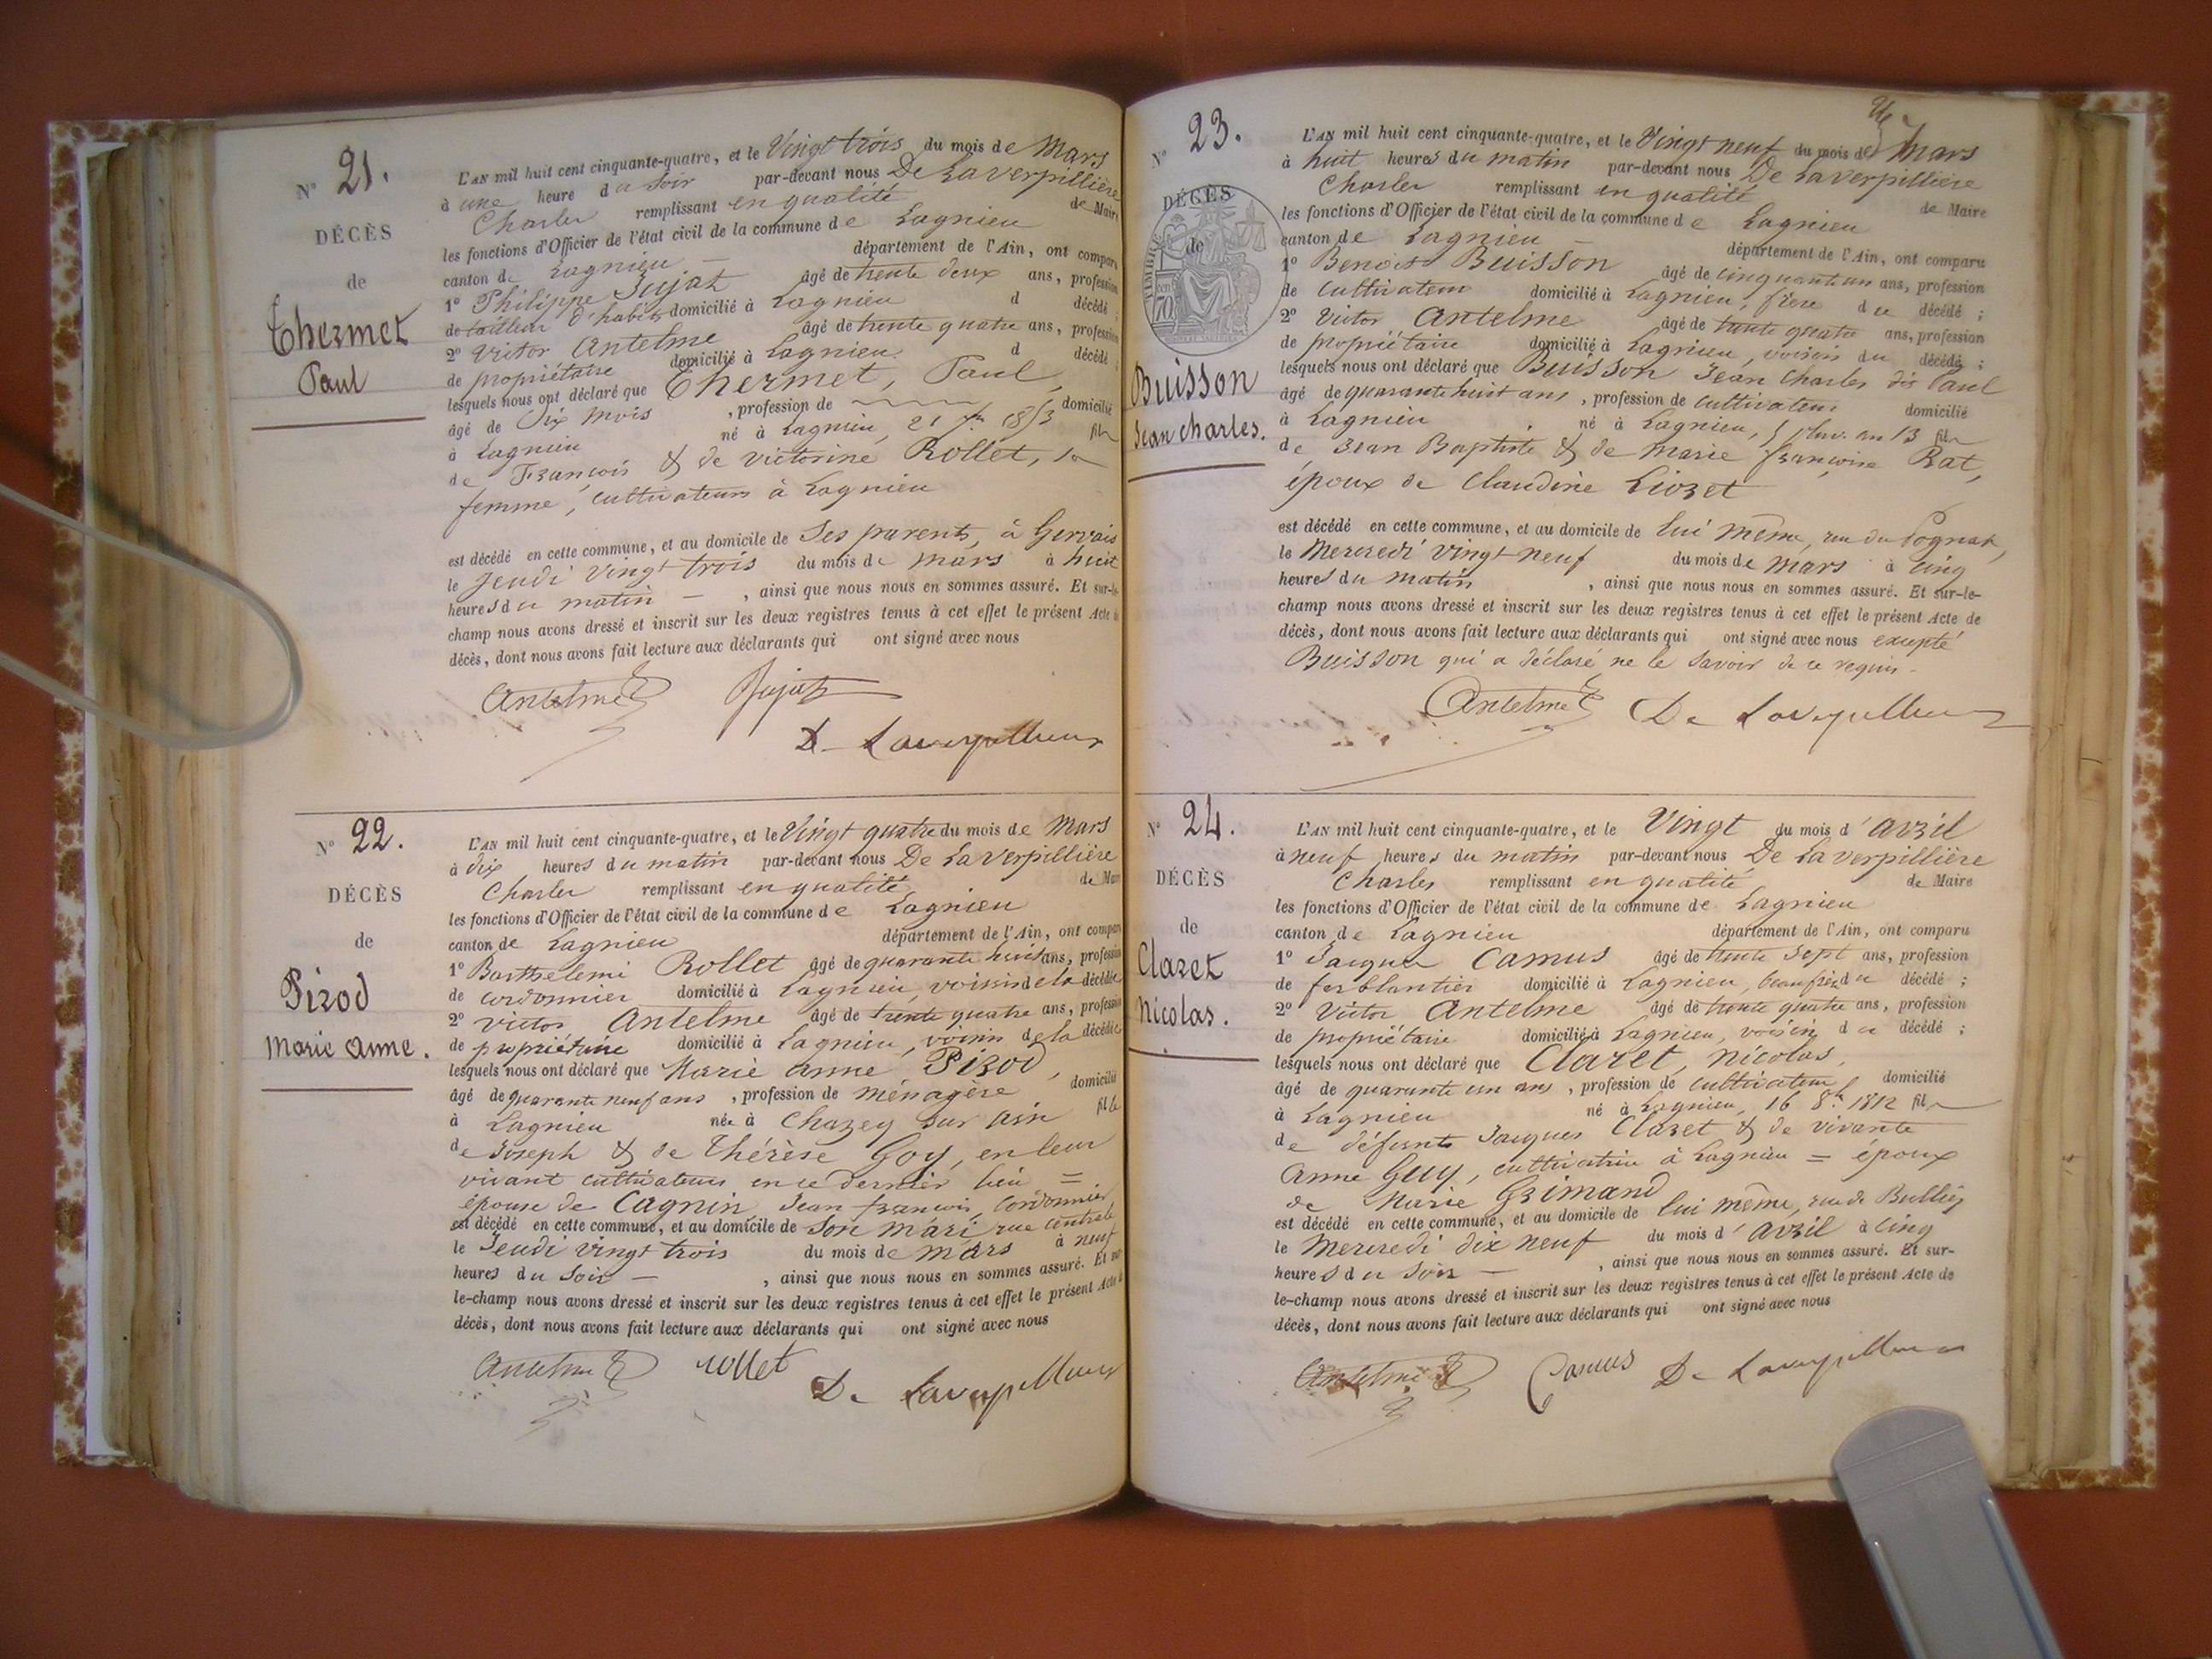 N° 21.
DÉCÈS
de
Thermet
Paul
L'AN mil huit cent cinquante-quatre, et le Vingt trois du mois de Mars
à une heure du soir par-devant nous De Laverpillière
Charles remplissant en qualité de Maire
les fonctions d'Officier de l'état civil de la commune de Lagnieu
canton de Lagnieu département de l'Ain, ont comparu
1° Philippe Jujat âgé de trente deux ans, profession
de tailleur d'habits domicilié à Lagnieu d décédé ;
2° Victor Antelme âgé de trente quatre ans, profession
de propriétaire domicilié à Lagnieu d décédé ;
lesquels nous ont déclaré que Thermet, Paul,
âgé de Six mois, profession de domicilié
à Lagnieu né à Lagnieu, 21 1853 fils
de François & de Victorine Rollet, sa
femme, cultivateurs à Lagnieu
est décédé en cette commune, et au domicile de Ses parents, à Gervais
le Jeudi vingt trois du mois de mars à huit
heures du matin –, ainsi que nous nous en sommes assuré. Et sur-le-
champ nous avons dressé et inscrit sur les deux registres tenus à cet effet le présent Acte de
décès, dont nous avons fait lecture aux déclarants qui ont signé avec nous
Antelme Jujat
De Laverpilliere
N° 22.
DÉCÈS
de
Pirod
Marie Anne.
L'AN mil huit cent cinquante-quatre, et le Vingt quatre du mois de Mars
à dix heures du matin par-devant nous De Laverpillière
Charles remplissant en qualité de Maire
les fonctions d'Officier de l'état civil de la commune de Lagnieu
canton de Lagnieu département de l'Ain, ont comparu
1° Barthelemi Rollet âgé de quarante huit ans, profession
de cordonnier domicilié à Lagnieu, voisin de la décédée
2° Victor Antelme âgé de trente quatre ans, profession
de propriétaire domicilié à Lagnieu, voisin de la décédée
lesquels nous ont déclaré que Marie Anne Pirod,
âgé de quarante neuf ans, profession de ménagère domicilié
à Lagnieu née à Chazey sur Ain fille
de Joseph & de Thérèse Goy, en leur
vivant cultivateurs en ce dernier lieu =
épouse de Cagnin, Jean françois, cordonnier,
est décédé en cette commune, et au domicile de Son mari, rue centrale
le Jeudi vingt trois du mois de mars à neuf
heures du Soir –, ainsi que nous nous en sommes assuré. Et sur-
le-champ nous avons dressé et inscrit sur les deux registres tenus à cet effet le présent Acte de
décès, dont nous avons fait lecture aux déclarants qui ont signé avec nous
Antelme rollet De Laverpilliere
N° 23.
DÉCÈS
de
Buisson
Jean Charles.
L'AN mil huit cent cinquante-quatre, et le Vingt neuf du mois de Mars
à huit heures du matin par-devant nous De Laverpillière
Charles remplissant en qualité de Maire
les fonctions d'Officier de l'état civil de la commune de Lagnieu
canton de Lagnieu – département de l'Ain, ont comparu
1° Benoit Buisson âgé de cinquante un ans, profession
de cultivateur domicilié à Lagnieu, frère du décédé ;
2° Victor Antelme âgé de trente quatre ans, profession
de propriétaire domicilié à Lagnieu, voisin du décédé ;
lesquels nous ont déclaré que Buisson Jean Charles dit Paul
âgé de quarante huit ans, profession de cultivateur domicilié
à Lagnieu né à Lagnieu, 5 pluv. an 13 fils
de Jean Baptiste & de Marie françoise Rat,
époux de Claudine Liozet
est décédé en cette commune, et au domicile de lui même, rue du Pognat,
le Mercredi vingt neuf du mois de mars à cinq
heures du matin, ainsi que nous nous en sommes assuré. Et sur-le-
champ nous avons dressé et inscrit sur les deux registres tenus à cet effet le présent Acte de
décès, dont nous avons fait lecture aux déclarants qui ont signé avec nous excepté
Buisson qui a déclaré ne le savoir de ce requis.
Antelme De Laverpilliere
N° 24.
DÉCÈS
de
Claret
Nicolas.
L'AN mil huit cent cinquante-quatre, et le Vingt du mois d'avril
à neuf heures du matin par-devant nous De Laverpillière
Charles remplissant en qualité de Maire
les fonctions d'Officier de l'état civil de la commune de Lagnieu
canton de Lagnieu département de l'Ain, ont comparu
1° Jacques Camus âgé de trente sept ans, profession
de ferblantier domicilié à Lagnieu, beaufrère du décédé ;
2° Victor Antelme âgé de trente quatre ans, profession
de propriétaire domicilié à Lagnieu, voisin du décédé ;
lesquels nous ont déclaré que Claret, Nicolas,
âgé de quarante un ans, profession de cultivateur domicilié
à Lagnieu né à Lagnieu, 16 8bre 1812 fils
de défunt Jacques Claret & de vivante
Anne Guy, cultivatrice à Lagnieu = époux
de Marie Grimand
est décédé en cette commune, et au domicile de lui même, rue de Bulliez
le Mercredi dix neuf du mois d'avril à cinq
heures du Soir –, ainsi que nous nous en sommes assuré. Et sur-
le-champ nous avons dressé et inscrit sur les deux registres tenus à cet effet le présent Acte de
décès, dont nous avons fait lecture aux déclarants qui ont signé avec nous
Antelme Camus De Laverpilliere